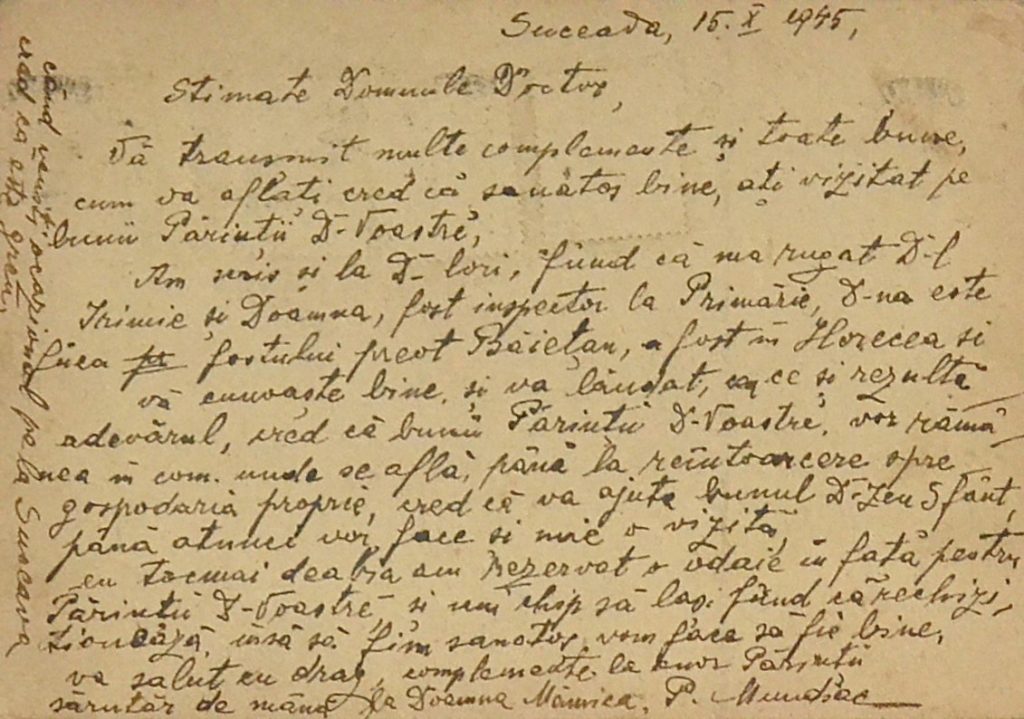 Suceava, 15. X 1945,
Stimate Domnule Doctor,
Vă transmit multe complemente și toate bune,
cum va aflați cred că sanătoș bine, ați vizitat pe
bunii Părinții D-Voastrĕ,
Am scris si la D- lori, fiind că ma rugat D-l
Irimie și Doamna, fost inspector la Primărie, D-na este
fiica fostului preot Băietan, a fost în Horecea si
vă cunoaște bine, și va lăudat, ce și rezultă
adevărul, cred că bunii Părinții D-Voastrĕ, vor rămâ
nea în com. unde se află, până la reîntoarcere spre
gospodaria proprie, cred că va ajuta bunul D-zeu Sfânt,
până atunci vor face si mie o vizită,
eu tocmai deabia am rezervat o odaie în fată pentru
Părinții D-Voastrĕ, si un chip să lași fiind că rechizi,
ționează, însă să fim sanătoș vom face să fie bine,
va salut cu drag, complemente la Părinții
sărutăr de mână la Doamna Mămica, P.
când veniți ocazional pe la Suceava
cred ca este greu,